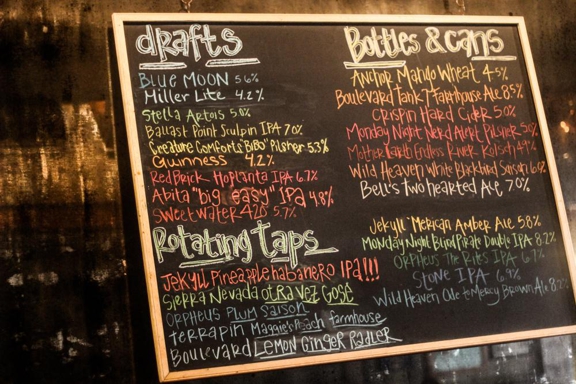 drafts
Blue Moon 5.6%
Miller Lite 4.2%
Stella Artois 5.0%
Ballast Point Sculpin IPA 7.0%
Creature Comforts "Bibo" Pilsner 5.3%
Guinness 4.2%
Red Brick Hoplanta IPA 6.7%
Abita "big easy" IPA 4.8%
Sweetwater 420 5.7%
Rotating Taps
Jekyll Pineapple habanero IPA!!!
Sierra Nevada Otra Vez Gose
Orpheus Plum Saison
Terrapin Maggie's Peach farmhouse
Boulevard Lemon Ginger Radler
Bottles & cans
Anchor Mango Wheat 4.5%
Boulevard Tank 7 Farmhouse Ale 8.5%
Crispin Hard Cider 5.0%
Monday Night Nerd Alert Pilsner 5.0%
Motherearth Endless River Kolsch 4.9%
Wild Heaven White Blackbird Saison
Bell's Two hearted Ale 7.0%
Jekyll 'Merican Amber Ale 5.8%
Monday Night Blind Pirate Double IPA 8.2%
Orpheus The Rites IPA 6.7%
Stone IPA 6.9%
Wild Heaven Ode to Mercy Brown Ale 8.2%